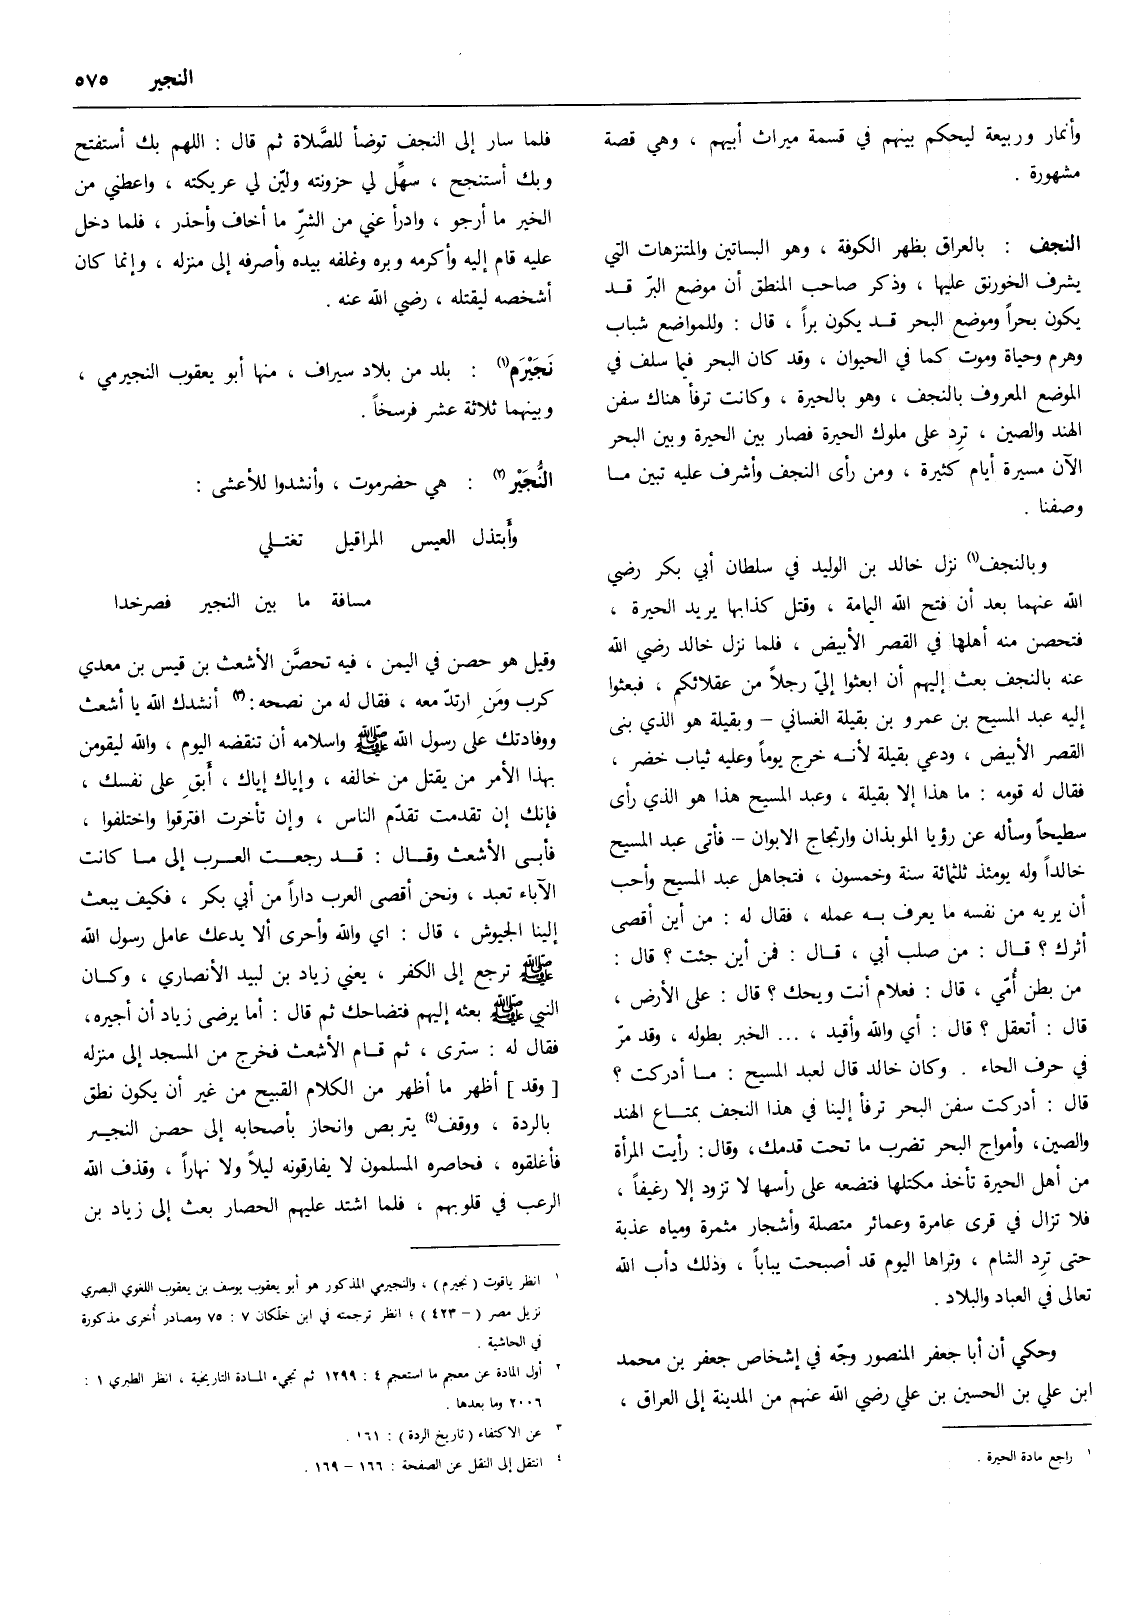 النجير ٥٧٥
وأنمار وربيعة ليحكم بينهم في قسمة ميراث أبيهم ، وهي قصة
مشهورة .
النجف : بالعراق بظهر الكوفة ، وهو البساتين والمتنزهات التي
يشرف الخورنق عليها ، وذكر صاحب المنطق أن موضع البرّ قد
يكون بحراً وموضع البحر قد يكون براً ، قال : وللمواضع شباب
وهرم وحياة وموت كما في الحيوان ، وقد كان البحر فيما سلف في
الموضع المعروف بالنجف ، وهو بالحيرة ، وكانت ترفأ هناك سفن
الهند والصين ، ترِد على ملوك الحيرة فصار بين الحيرة وبين البحر
الآن مسيرة أيام كثيرة ، ومن رأى النجف وأشرف عليه تبين ما
وصفنا .
وبالنجف(١) نزل خالد بن الوليد في سلطان أبي بكر رضي
الله عنهما بعد أن فتح الله اليمامة ، وقتل كذابها يريد الحيرة ،
فتحصن منه أهلها في القصر الأبيض ، فلما نزل خالد رضي الله
عنه بالنجف بعث إليهم أن ابعثوا إليّ رجلاً من عقلائكم ، فبعثوا
إليه عبد المسيح بن عمرو بن بقيلة الغساني – وبقيلة هو الذي بنى
القصر الأبيض ، ودعي بقيلة لأنه خرج يوماً وعليه ثياب خضر ،
فقال له قومه : ما هذا إلا بقيلة ، وعبد المسيح هذا هو الذي رأى
سطيحاً وسأله عن رؤيا الموبذان وارتجاج الايوان – فأتى عبد المسيح
خالداً وله يومئذ ثلثمائة سنة وخمسون ، فتجاهل عبد المسيح وأحب
أن يريه من نفسه ما يعرف به عمله ، فقال له : من أين أقصى
أثرك ؟ قال : من صلب أبي ، قال : فمن أين جئت ؟ قال :
من بطن أُمّي ، قال : فعلام أنت ويحك ؟ قال : على الأرض ،
قال : أتعقل ؟ قال : أي والله وأقيد ، ... الخبر بطوله ، وقد مرّ
في حرف الحاء . وكان خالد قال لعبد المسيح : ما أدركت ؟
قال : أدركت سفن البحر ترفأ إلينا في هذا النجف بمتاع الهند
والصين، وأمواج البحر تضرب ما تحت قدمك، وقال: رأيت المرأة
من أهل الحيرة تأخذ مكتلها فتضعه على رأسها لا تزود إلا رغيفاً ،
فلا تزال في قرى عامرة وعمائر متصلة وأشجار مثمرة ومياه عذبة
حتى ترِد الشام ، وتراها اليوم قد أصبحت يباباً ، وذلك دأب الله
تعالى في العباد والبلاد .
وحكي أن أبا جعفر المنصور وجّه في إشخاص جعفر بن محمد
ابن علي بن الحسين بن علي رضي الله عنهم من المدينة إلى العراق ،
١ راجع مادة الحيرة .
فلما سار إلى النجف توضأ للصَّلاة ثم قال : اللهم بك أستفتح
وبك أستنجح ، سهِّل لي حزونته وليّن لي عريكته ، واعطني من
الخير ما أرجو ، وادرأ عني من الشرِّ ما أخاف وأحذر ، فلما دخل
عليه قام إليه وأكرمه وبره وغلفه بيده وأصرفه إلى منزله ، وإنما كان
أشخصه ليقتله ، رضي الله عنه .
نَجَيْرَم(١) : بلد من بلاد سيراف ، منها أبو يعقوب النجيرمي ،
وبينهما ثلاثة عشر فرسخاً .
النُّجَيْر(٢) : هي حضرموت ، وأنشدوا للأعشى :
وأَبتذل العيس المراقيل تغتلي
مسافة ما بين النجير فصرخدا
وقيل هو حصن في اليمن ، فيه تحصَّن الأشعث بن قيس بن معدي
كرب ومَن ارتدّ معه ، فقال له من نصحه:(٣) أنشدك الله يا أشعث
ووفادتك على رسول الله ﷺ واسلامه أن تنقضه اليوم ، والله ليقومن
بهذا الأمر من يقتل من خالفه ، وإياك إياك ، أَبقِ على نفسك ،
فإنك إن تقدمت تقدّم الناس ، وإن تأخرت افترقوا واختلفوا ،
فأبى الأشعث وقال : قد رجعت العرب إلى ما كانت
الآباء تعبد ، ونحن أقصى العرب داراً من أبي بكر ، فكيف يبعث
إلينا الجيوش ، قال : اي والله وأحرى ألا يدعك عامل رسول الله
ﷺ ترجع إلى الكفر ، يعني زياد بن لبيد الأنصاري ، وكان
النبي ﷺ بعثه إليهم فتضاحك ثم قال : أما يرضى زياد أن أجيره،
فقال له : سترى ، ثم قام الأشعث فخرج من المسجد إلى منزله
[ وقد ] أظهر ما أظهر من الكلام القبيح من غير أن يكون نطق
بالردة ، ووقف(٤) يتربص وانحاز بأصحابه إلى حصن النجير
فأغلقوه ، فحاصره المسلمون لا يفارقونه ليلاً ولا نهاراً ، وقذف الله
الرعب في قلوبهم ، فلما اشتد عليهم الحصار بعث إلى زياد بن
١ انظر ياقوت ( نجيرم ) ، والنجيرمي المذكور هو أبو يعقوب يوسف بن يعقوب اللغوي البصري
نزيل مصر ( – ٤٢٣ ) ؛ انظر ترجمته في ابن خلّكان ٧ : ٧٥ ومصادر أخرى مذكورة
في الحاشية .
٢ أول المادة عن معجم ما استعجم ٤ : ١٢٩٩ ثم تجيء المادة التاريخية ، انظر الطبري ١ :
٢٠٠٦ وما بعدها .
٣ عن الاكتفاء ( تاريخ الردة ) : ١٦١ .
٤ انتقل إلى النقل عن الصفحة : ١٦٦ – ١٦٩ .